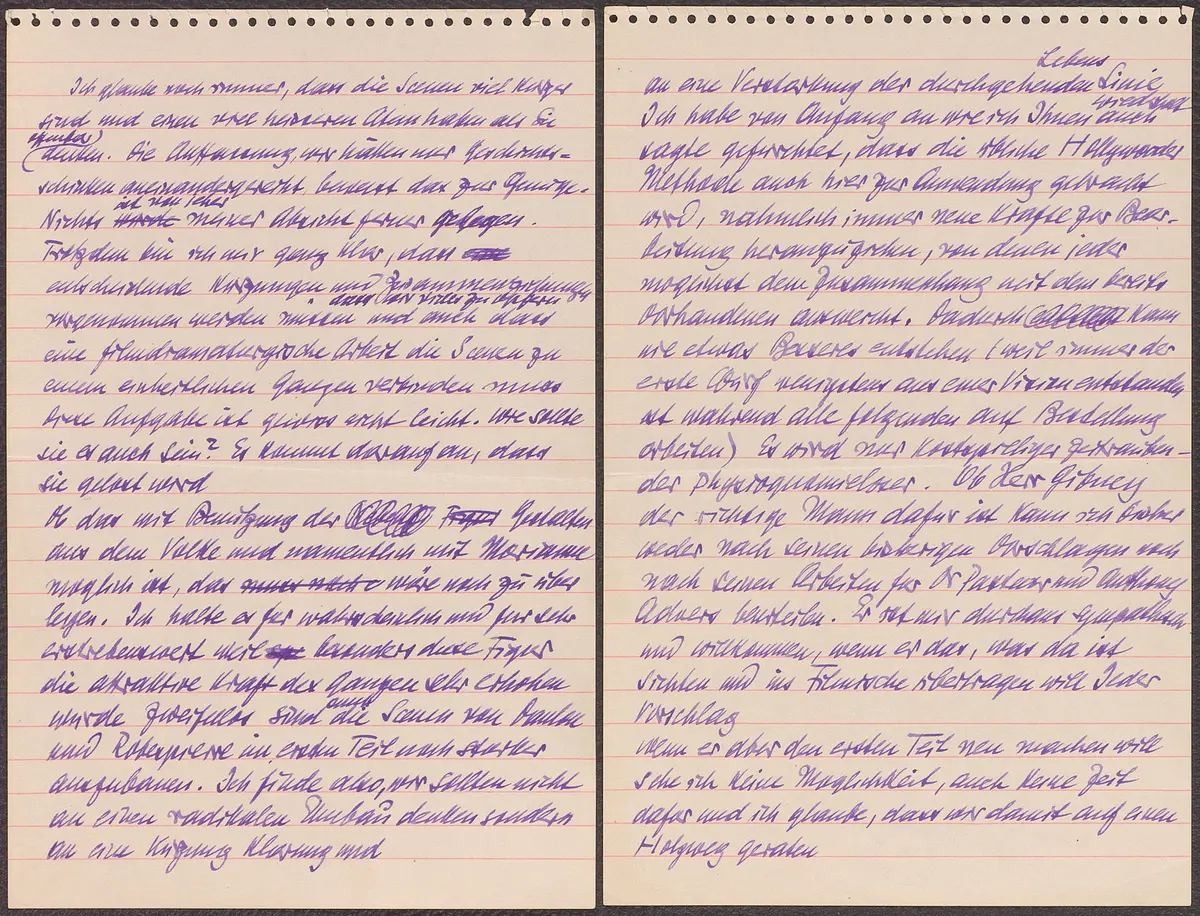 Ich glaube noch immer, dass die Scenen viel kürzer
sind und einen viel heisseren Atem haben als Sie
denken. Die Auffassung, wir hätten nur Geschichts-
schinken aneinandergereiht, beweist das zur Genüge.
ist von jeher
Nichts wurde meiner Absicht ferner gelegen.
Trotzdem bin ich mir ganz klar, dass
entscheidende Kürzungen und Zusammenziehungen
dass hier vieles zu opfern
vorgenommen werden müssen und auch dass
eine filmdramaturgische Arbeit die Scenen zu
einem einheitlichen Ganzen verbinden muss
Diese Aufgabe ist gewiss nicht leicht. Wie sollte
sie es auch sein? Es kommt darauf an, dass
sie gelöst wird
Ob das mit Benützung der Figur Gestalten
aus dem Volke und namentlich mit Marianne
möglich ist, das wäre noch zu über
legen. Ich halte es für wahrscheinlich und für sehr
erstrebenswert weil besonders diese Figur
die attraktive Kraft des Ganzen sehr erhöhen
auch
würde Zweifellos sind die Scenen von Danton
und Robespierre im ersten Teil noch stärker
auszubauen. Ich finde also, wir sollten nicht
an einen radikalen Umbau denken sondern
an eine Kürzung Klärung und
Lebens
an eine Verstärkung der durchgehenden Linie
Ich habe von Anfang an wie ich Ihnen auch
sagte gefürchtet, dass die übliche Hollywooder
Methode auch hier zur Anwendung gebracht
wird, nähmlich immer neue Kräfte zur Bear-
beitung heranzuziehen, von denen jeder
möglichst dem Zusammenhang mit dem bereits
Vorhandenen ausweicht. Dadurch kann
nie etwas Besseres entstehen (weil immer der
erste Wurf wenigstens aus einer Vision entstanden
ist während alle folgenden auf Bestellung
arbeiten) Es wird nur kostspieliger zeitrauben-
der physiognomieloser. Ob Herr Gibney
der richtige Mann dafür ist kann ich bisher
weder nach seinen bisherigen Vorschlägen noch
nach seinen Arbeiten für Dr Pasteur und Anthony
Advers beurteilen. Er ist mir durchaus sympathisch
und willkommen, wenn er das, was da ist
sichten und ins Filmische übertragen will Jeder
Vorschlag
wenn er aber den ersten Teil neu machen will
sehe ich keine Möglichkeit, auch keine Zeit
dafür und ich glaube, dass wir damit auf einen
Holzweg geraten